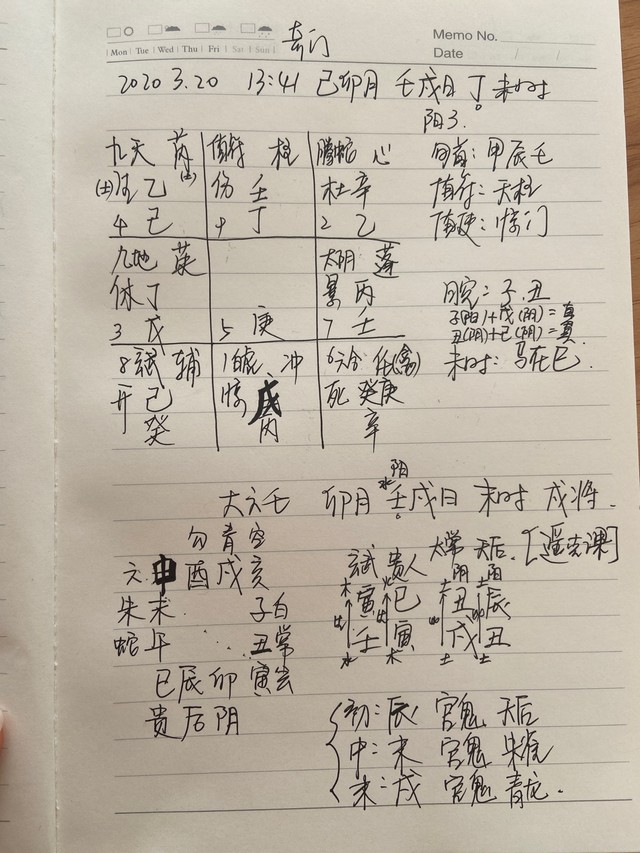 Mon Tue Wed Thu Fri Sat Sun
Memo No.
Date / /
奇门
2020 3.20 13:41 己卯月 壬戌日 丁未时
阳3。
九天 芮 值符 柱 腾蛇 心
乙 伤 壬 杜 辛
4 己 9 丁 2 乙
旬首: 甲辰壬
值符: 天柱
值使: 惊门
九地 英 太阴 蓬
休 丁 景 丙
3 戊 5 庚 7 壬
日空: 子.丑
子(阳)+戊(阳)=真
丑(阴)+己(阴)=真
未时: 马在巳.
8 玄武 辅 1 白虎 冲 6 六合 任(禽)
开 己 惊 戊 死 癸庚
癸 丙 辛
大六壬 卯月 壬戌日 未时 戌将.
水 阳
勾 青 空
六 申 酉 戌 亥
朱 未 子 白
蛇 午 丑 常
巳 辰 卯 寅 玄
贵 后 阴
玄武 贵人 太常 天后. [遥克课]
木 火 阴土 阳土
寅 巳 丑 辰
壬 寅 戌 丑
水 木 土 土
初: 辰 官鬼 天后
中: 未 官鬼 朱雀
末: 戌 官鬼 青龙.